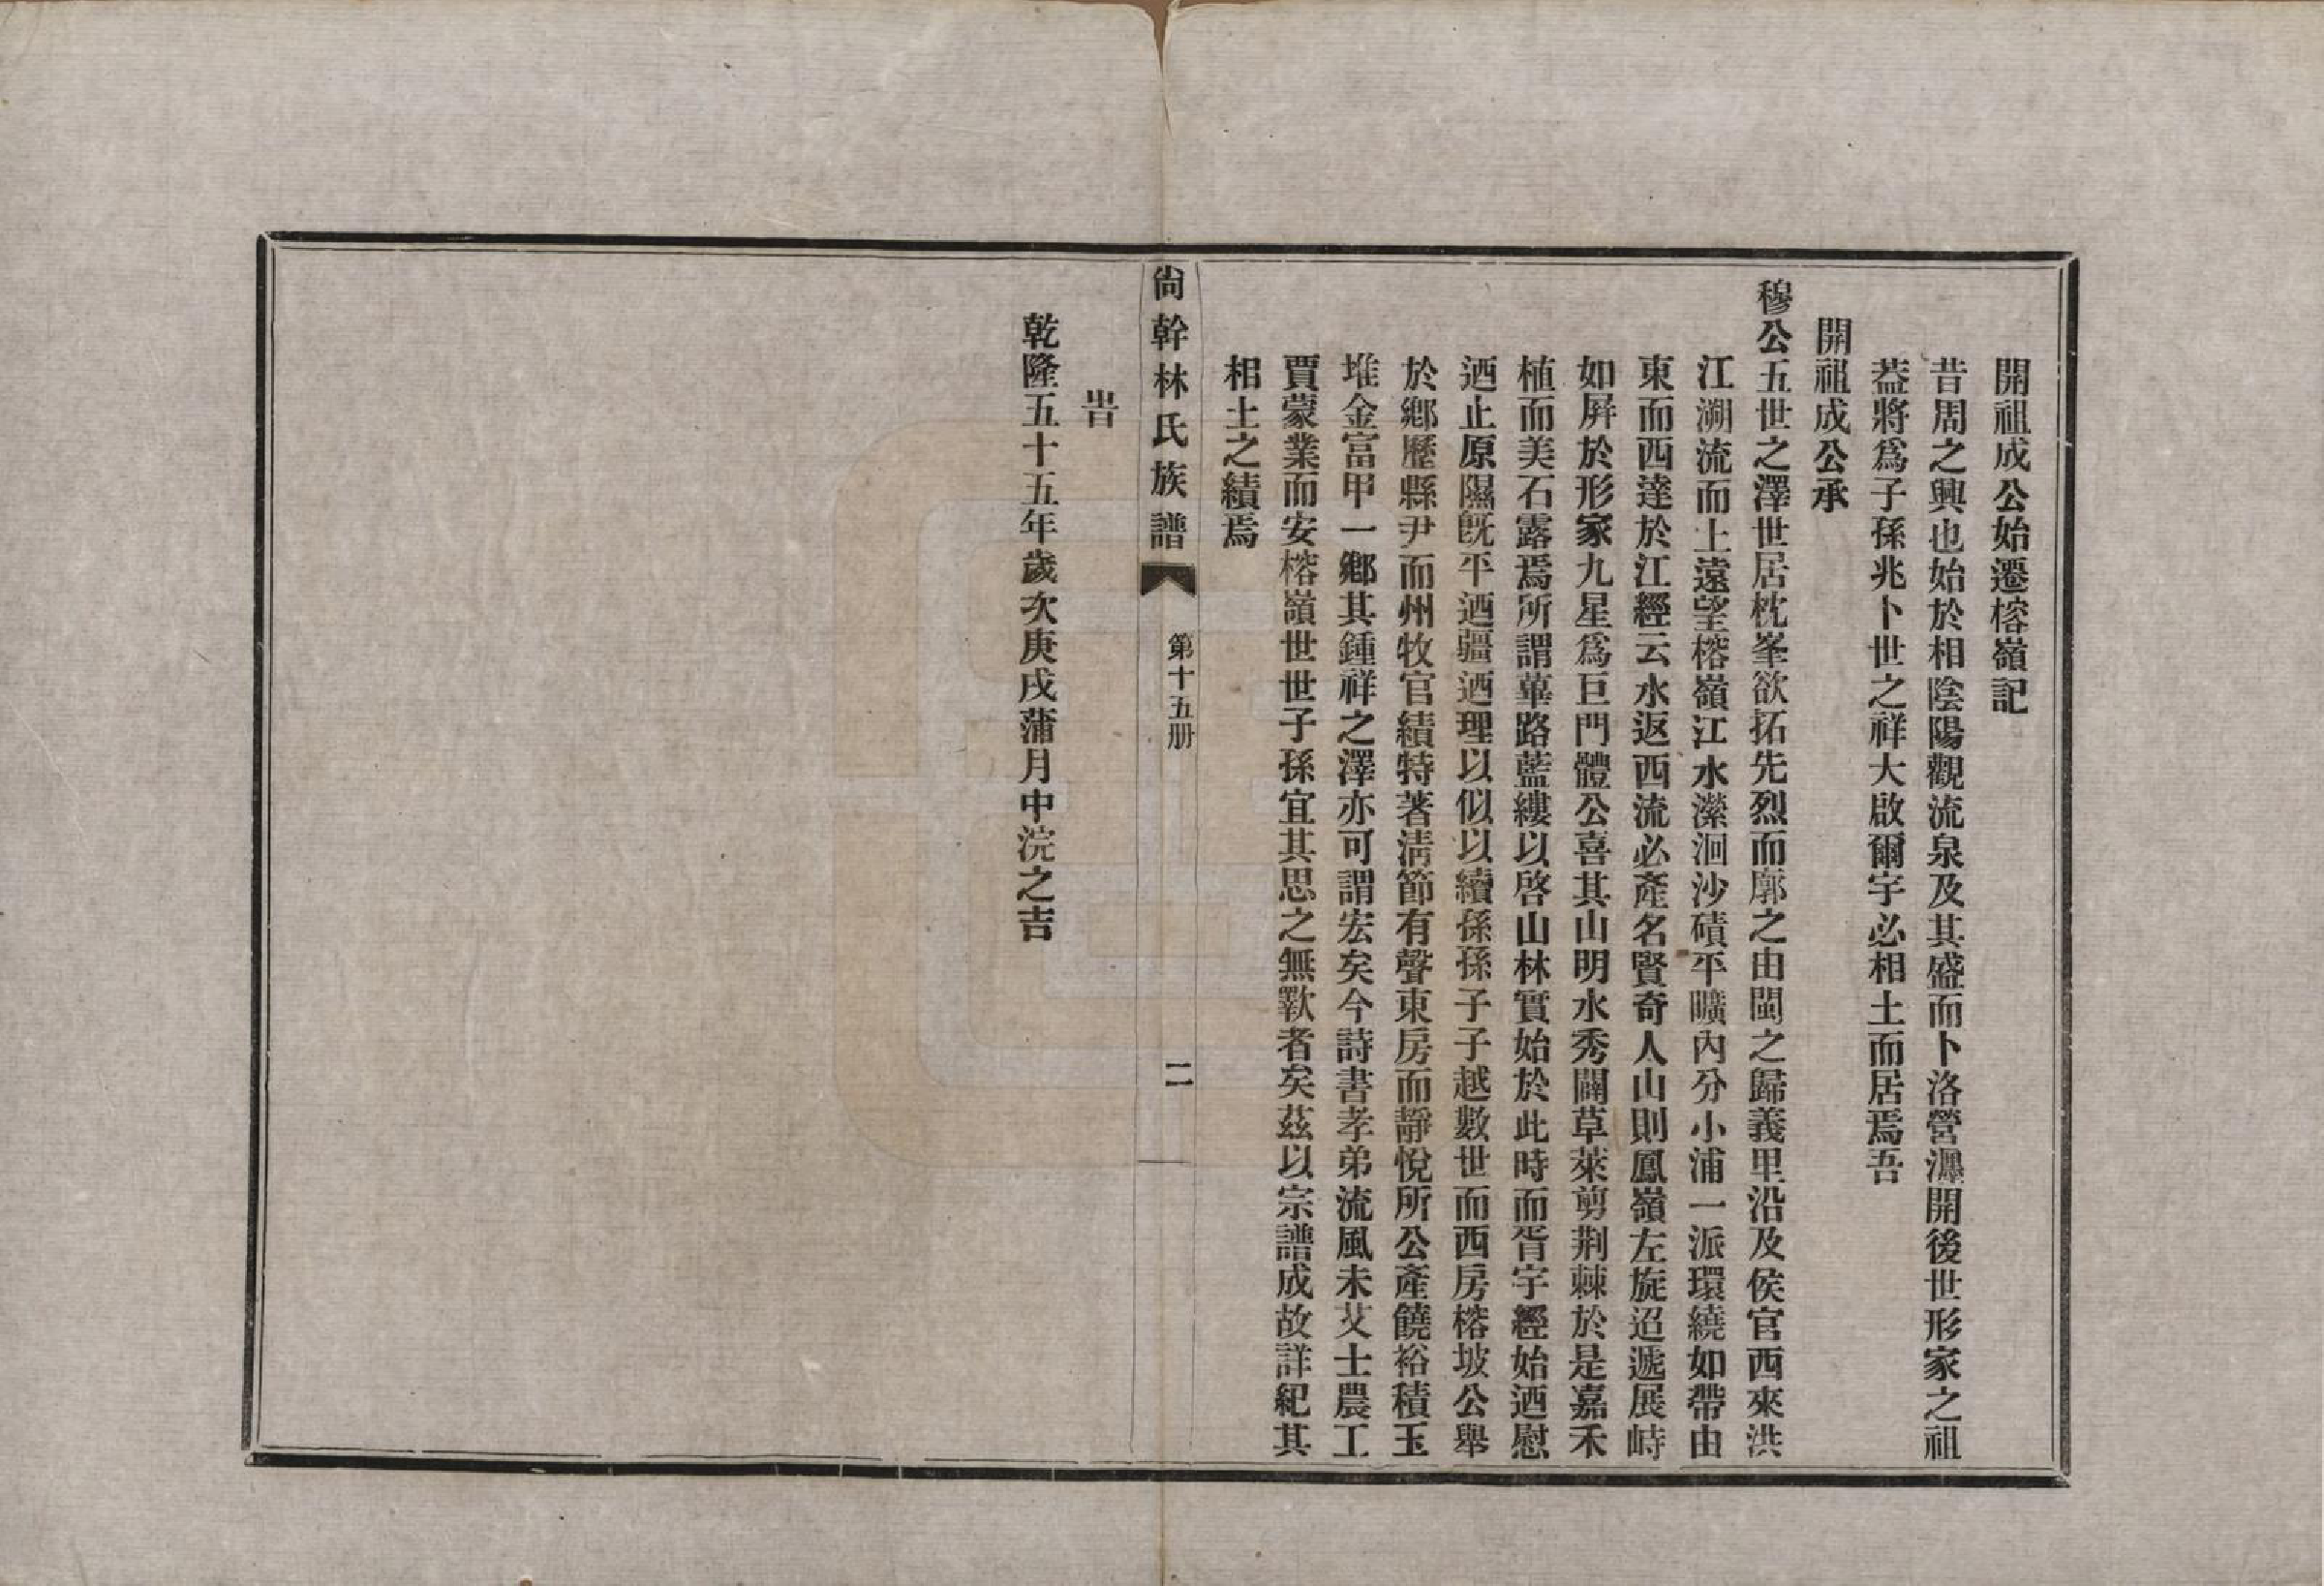 開祖成公始遷榕嶺記
昔周之興也始於相陰陽觀流泉及其盛而卜洛營瀍開後世形家之祖
葢將爲子孫兆卜世之祥大啟爾宇必相土而居焉吾
開祖成公承
穆公五世之澤世居枕峯欲拓先烈而廓之由閩之歸義里沿及侯官西來洪
江溯流而上遠望榕嶺江水瀠洄沙磧平曠內分小浦一派環繞如帶由
東而西達於江經云水返西流必產名賢奇人山則鳳嶺左旋迢遞展峙
如屏於形家九星爲巨門體公喜其山明水秀闢草萊剪荆棘於是嘉禾
植而美石露焉所謂蓽路藍縷以啓山林實始於此時而胥宇經始迺慰
迺止原隰旣平迺疆迺理以似以續孫孫子子越數世而西房榕坡公舉
於鄕歷縣尹而州牧官績特著淸節有聲東房而靜悅所公產饒裕積玉
堆金富甲一鄕其鍾祥之澤亦可謂宏矣今詩書孝弟流風未艾士農工
賈蒙業而安榕嶺世世子孫宜其思之無斁者矣茲以宗譜成故詳紀其
相土之績焉
尙幹林氏族譜
第十五册
二
旹
乾隆五十五年歲次庚戌蒲月中浣之吉